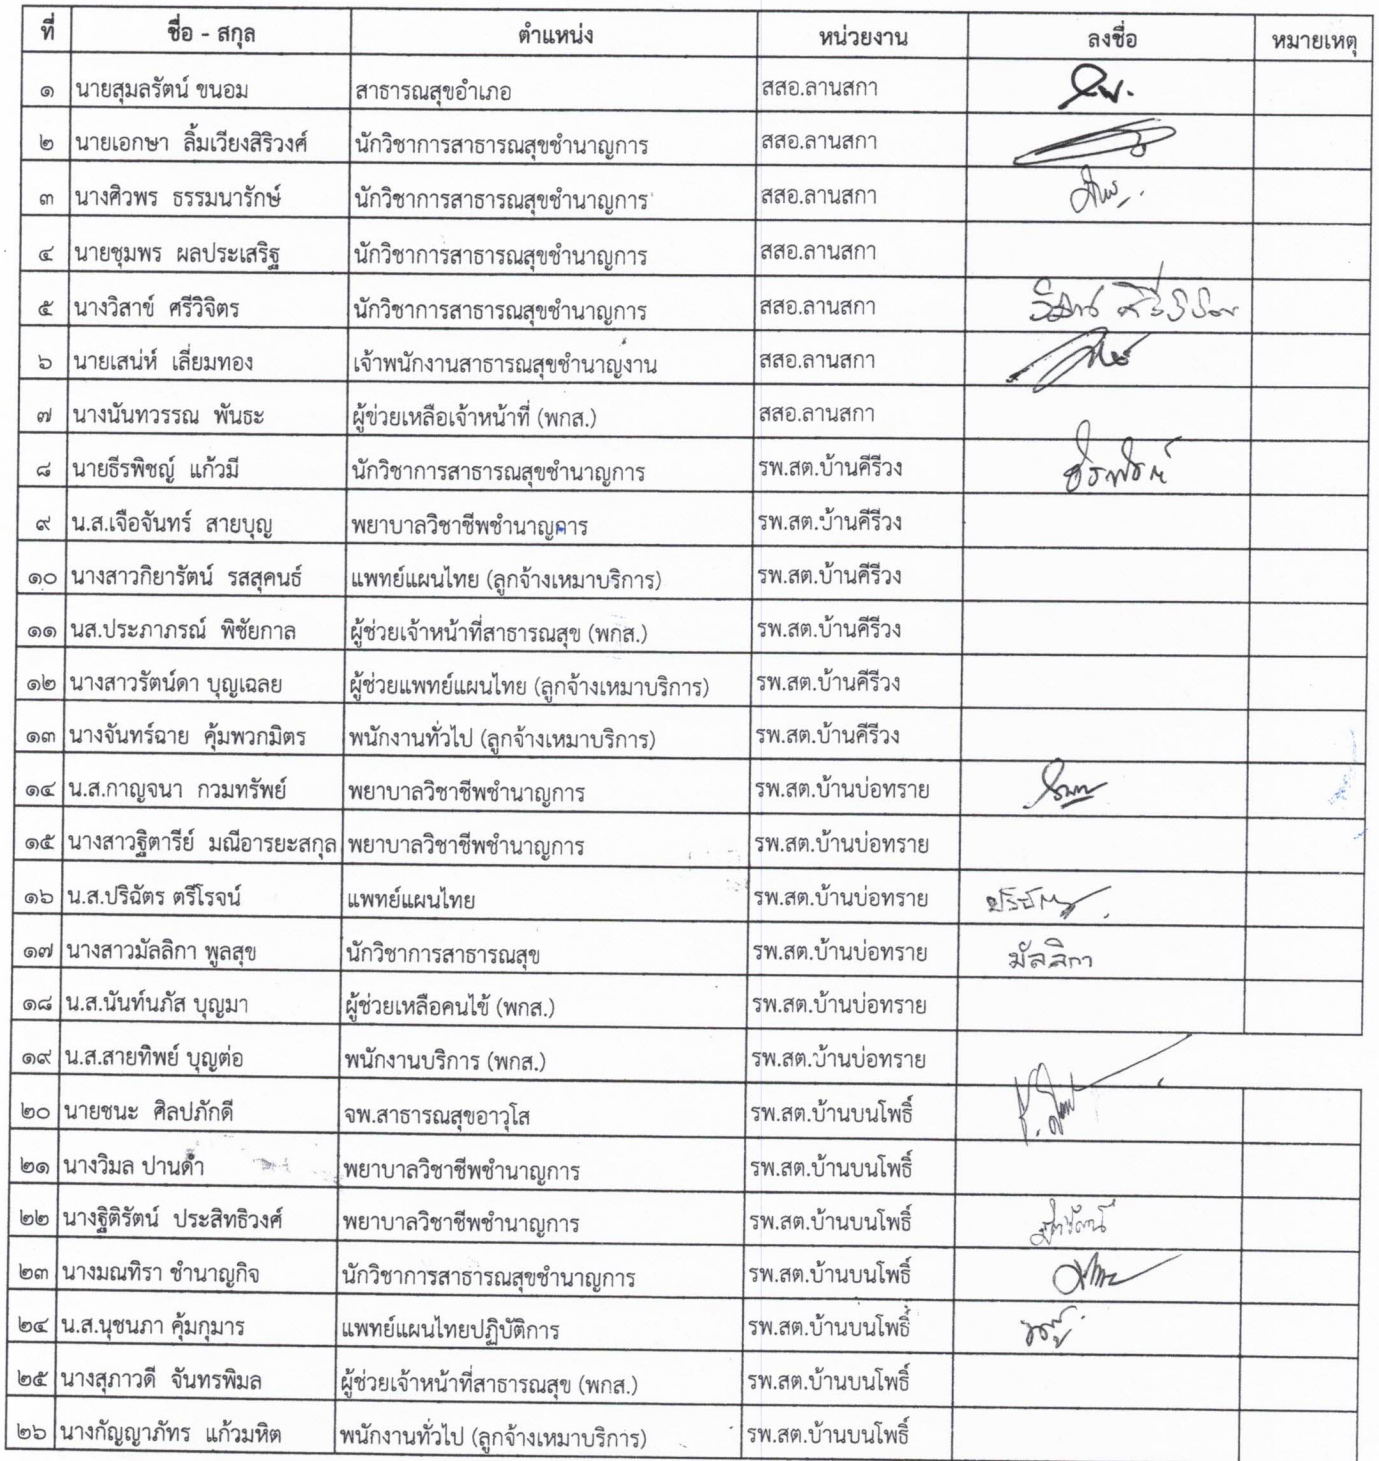 ที่ ชื่อ - สกุล ตำแหน่ง หน่วยงาน ลงชื่อ หมายเหตุ
๑ นายสุมลรัตน์ ขนอม สาธารณสุขอำเภอ สสอ.ลานสกา
๒ นายเอกษา ลิ้มเวียงสิริวงศ์ นักวิชาการสาธารณสุขชำนาญการ สสอ.ลานสกา
๓ นางศิวพร ธรรมนารักษ์ นักวิชาการสาธารณสุขชำนาญการ สสอ.ลานสกา
๔ นายชุมพร ผลประเสริฐ นักวิชาการสาธารณสุขชำนาญการ สสอ.ลานสกา
๕ นางวิสาข์ ศรีวิจิตร นักวิชาการสาธารณสุขชำนาญการ สสอ.ลานสกา
๖ นายเสน่ห์ เลี่ยมทอง เจ้าพนักงานสาธารณสุขชำนาญงาน สสอ.ลานสกา
๗ นางนันทวรรณ พันธะ ผู้ข่วยเหลือเจ้าหน้าที่ (พกส.) สสอ.ลานสกา
๘ นายธีรพิชญ์ แก้วมี นักวิชาการสาธารณสุขชำนาญการ รพ.สต.บ้านคีรีวง
๙ น.ส.เจือจันทร์ สายบุญ พยาบาลวิชาชีพชำนาญการ รพ.สต.บ้านคีรีวง
๑๐ นางสาวกิยารัตน์ รสสุคนธ์ แพทย์แผนไทย (ลูกจ้างเหมาบริการ) รพ.สต.บ้านคีรีวง
๑๑ นส.ประภาภรณ์ พิชัยกาล ผู้ช่วยเจ้าหน้าที่สาธารณสุข (พกส.) รพ.สต.บ้านคีรีวง
๑๒ นางสาวรัตน์ดา บุญเฉลย ผู้ช่วยแพทย์แผนไทย (ลูกจ้างเหมาบริการ) รพ.สต.บ้านคีรีวง
๑๓ นางจันทร์ฉาย คุ้มพวกมิตร พนักงานทั่วไป (ลูกจ้างเหมาบริการ) รพ.สต.บ้านคีรีวง
๑๔ น.ส.กาญจนา กวมทรัพย์ พยาบาลวิชาชีพชำนาญการ รพ.สต.บ้านบ่อทราย
๑๕ นางสาวฐิตารีย์ มณีอารยะสกุล พยาบาลวิชาชีพชำนาญการ รพ.สต.บ้านบ่อทราย
๑๖ น.ส.ปริฉัตร ตรีโรจน์ แพทย์แผนไทย รพ.สต.บ้านบ่อทราย
๑๗ นางสาวมัลลิกา พูลสุข นักวิชาการสาธารณสุข รพ.สต.บ้านบ่อทราย มัลลิกา
๑๘ น.ส.นันท์นภัส บุญมา ผู้ช่วยเหลือคนไข้ (พกส.) รพ.สต.บ้านบ่อทราย
๑๙ น.ส.สายทิพย์ บุญต่อ พนักงานบริการ (พกส.) รพ.สต.บ้านบ่อทราย
๒๐ นายชนะ ศิลปภักดี จพ.สาธารณสุขอาวุโส รพ.สต.บ้านบนโพธิ์
๒๑ นางวิมล ปานดำ พยาบาลวิชาชีพชำนาญการ รพ.สต.บ้านบนโพธิ์
๒๒ นางฐิติรัตน์ ประสิทธิวงศ์ พยาบาลวิชาชีพชำนาญการ รพ.สต.บ้านบนโพธิ์
๒๓ นางมณทิรา ชำนาญกิจ นักวิชาการสาธารณสุขชำนาญการ รพ.สต.บ้านบนโพธิ์
๒๔ น.ส.นุชนภา คุ้มกุมาร แพทย์แผนไทยปฏิบัติการ รพ.สต.บ้านบนโพธิ์
๒๕ นางสุภาวดี จันทรพิมล ผู้ช่วยเจ้าหน้าที่สาธารณสุข (พกส.) รพ.สต.บ้านบนโพธิ์
๒๖ นางกัญญาภัทร แก้วมหิต พนักงานทั่วไป (ลูกจ้างเหมาบริการ) รพ.สต.บ้านบนโพธิ์